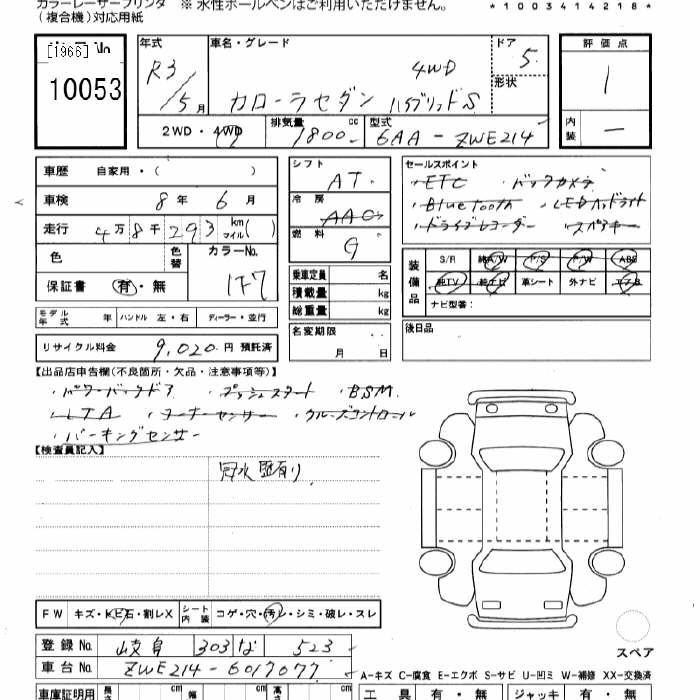 カラーレーザープリンタ ※ 水性ボールペンはご利用いただけません。
(複合機)対応用紙
*1003414218*
[1966]
10053
年式 R3/5月
車名・グレード 4WD
カローラセダン ハイブリッドS
ドア 5
形状
評価点 1
内装 —
2WD・4WD
排気量 1800 cc
型式 6AA-ZWE214
車歴 自家用・( )
車検 8年 6月
走行 4万8千293 km マイル( )
色 色替 カラーNo. 1F7
保証書 有・無
モデル年式 年 ハンドル 左・右 ディーラー・並行
リサイクル料金 9,020円 預託済
シフト AT
冷房 AAC
燃料 G
乗車定員 名
積載量 kg
総重量 kg
名変期限 月 日
セールスポイント
・ETC ・バックカメラ
・Bluetooth ・LEDヘッドライト
・ドライブレコーダー ・スペアキー
装備品 S/R 純A/W P/S P/W ABS
純TV 純ナビ 革シート 外ナビ エアB
ナビ型番:
後日品
【出品店申告欄(不良箇所・欠品・注意事項等)】
・パワーバックドア ・プッシュスタート ・BSM
・LTA ・コーナーセンサー ・クルーズコントロール
・パーキングセンサー
【検査員記入】
冠水歴有り
FW キズ・ヒビ石・割レX シート内装 コゲ・穴・汚レ・シミ・破レ・スレ
登録No. 岐阜 303 な 523
車台No. ZWE214-6017077
スペア
A-キズ C-腐食 E-エクボ S-サビ U-凹ミ W-補修 XX-交換済
車庫証明用 長さ cm 幅 cm 高さ cm
工具 有・無 ジャッキ 有・無